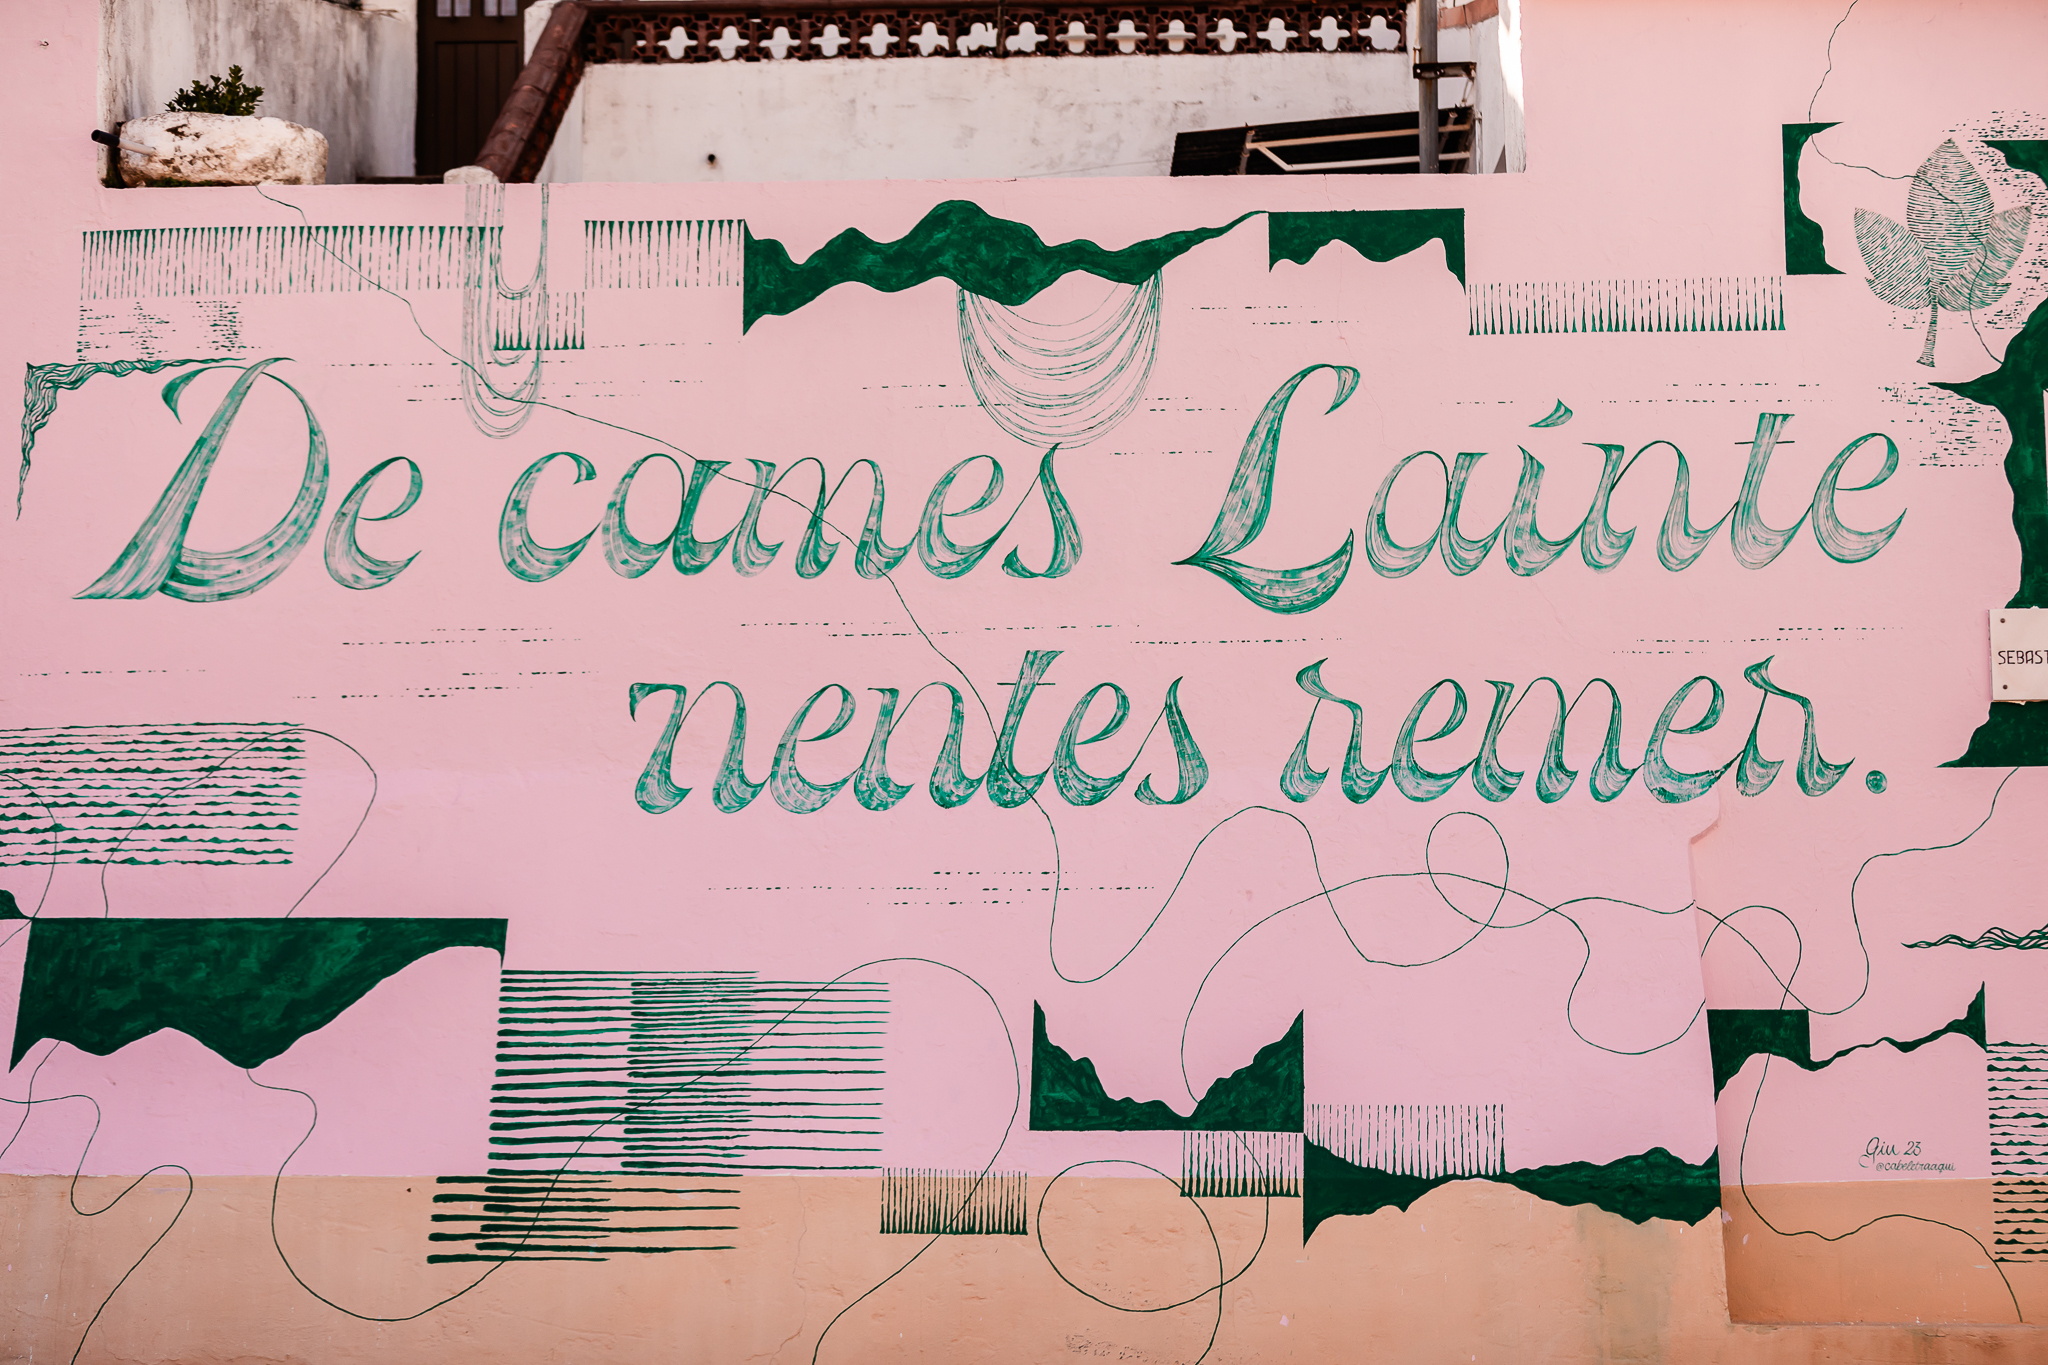 De cames Laínte
nentes remer.
SEBAST
Giu 23
@cabeletraaqui